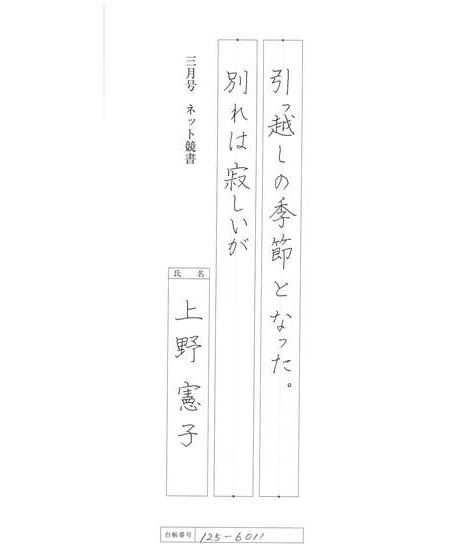 引っ越しの季節となった。
別れは寂しいが
三月号 ネット競書
氏名
上野憲子
台帳番号 125-6011